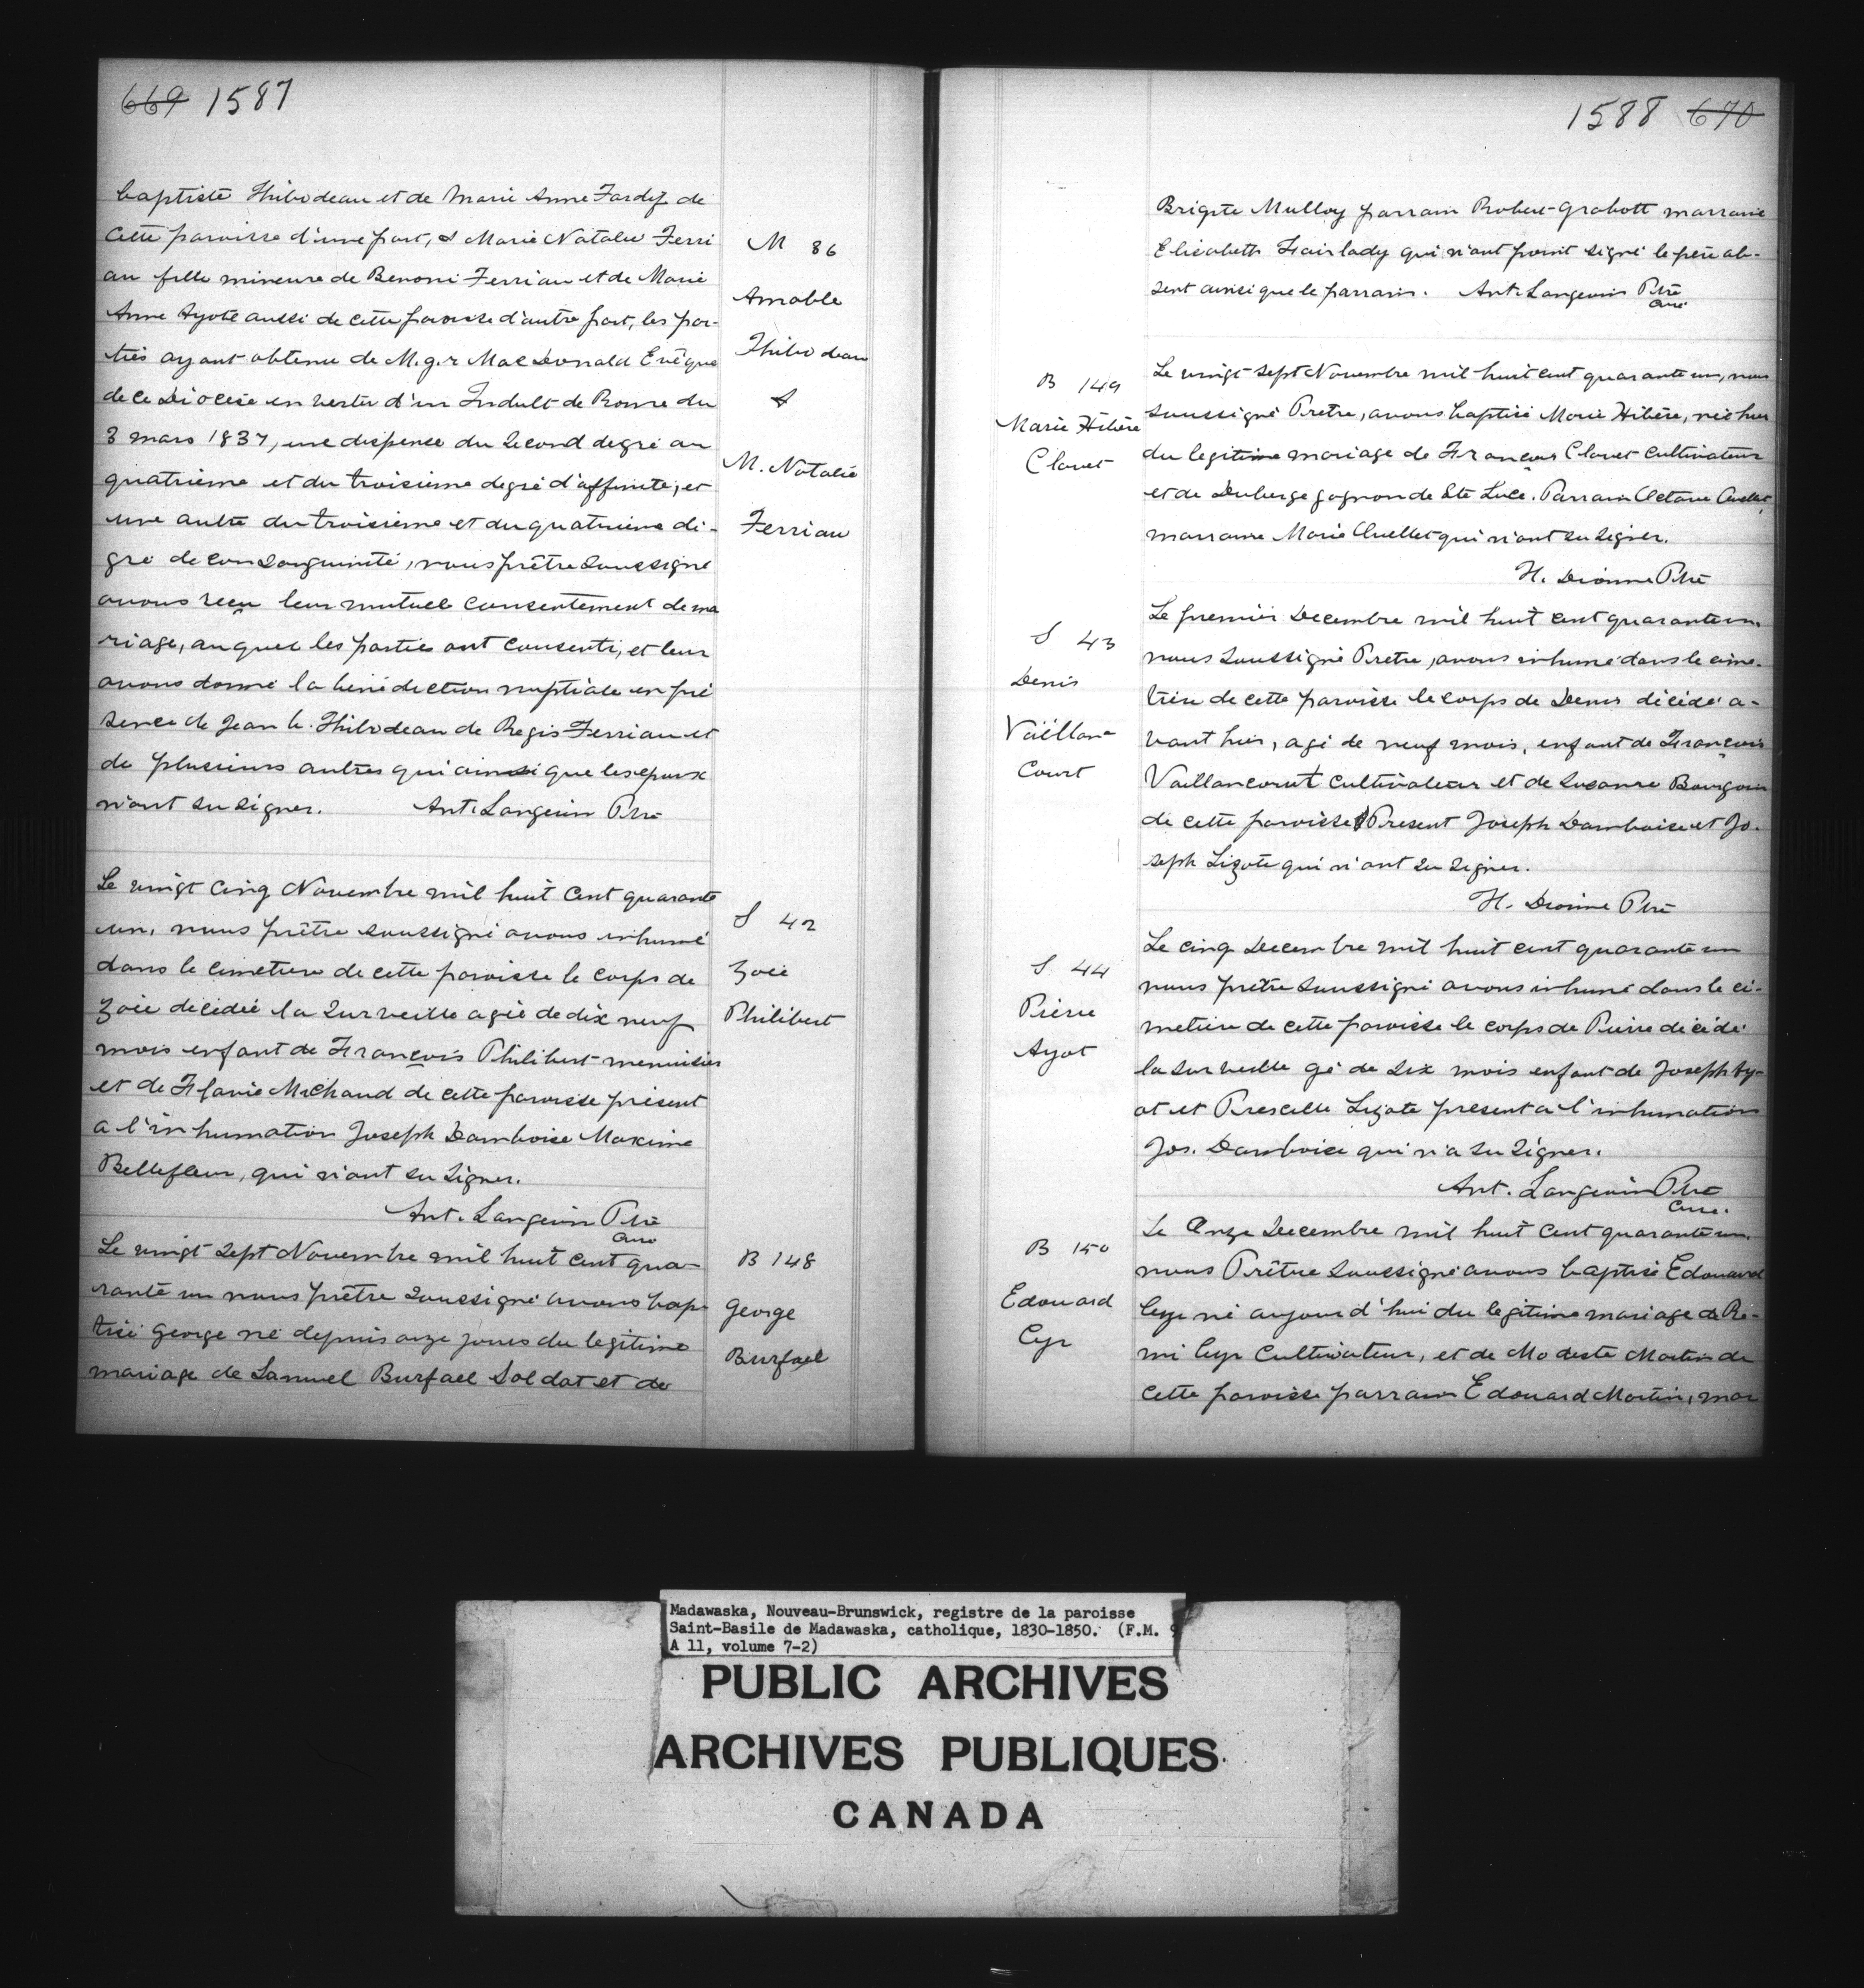 669 1587
baptiste Thibodeau et de Marie Anne Fardif de
cette paroisse d'une part, & Marie Natalie Ferri
au fille mineure de Benoni Ferriau et de Marie
Anne Ayote aussi de cette paroisse d'autre part, les par-
ties ayant obtenu de M.g.r MacDonald Evêque
de ce Diocèse en vertu d'un Indult de Rome du
3 mars 1837, une dispense du second degré au
quatrieme et du troisieme degré d'affinité, et
une autre du troisieme et du quatrieme de-
gré de consanguinité, nous prêtre soussigné
avons reçu leur mutuel consentement de ma
riage, auquel les parties ont consenti, et leur
avons donné la bénédiction nuptiale en pré
sence de Jean b. Thibodeau de Regis Ferriau et
de plusieurs autres qui ainsi que les epoux
n'ont su signer. Ant. Langevin Ptre
M 86
Amable
Thibodeau
&
M. Natalie
Ferriau
Le vingt cinq Novembre mil huit cent quarante
un, nous prêtre soussigné avons inhumé
dans le cimetiere de cette paroisse le corps de
Zoée décédée la surveille agée de dix neuf
mois enfant de François Philibert menuisier
et de Flavie Michaud de cette paroisse présent
a l'inhumation Joseph Damboise Maxime
Bellefleur, qui n'ont su signer.
Ant. Langevin Ptre
Curé
S 42
Zoée
Philibert
Le vingt sept Novembre mil huit cent qua-
rante un nous prêtre soussigné avons bap
tisé George né depuis onze jours du legitime
mariage de Samuel Burfael Soldat et de
B 148
George
Burfael
1588 670
Brigite Mulloy parrain Robert Grabott marraine
Elisabeth Fairlady qui n'ont point signé le père ab-
sent ainsi que le parrain. Ant. Langevin Ptre
Curé
B 149
Marie Hibère
Clavet
Le vingt sept Novembre mil huit cent quarante un, nous
soussigné Pretre, avons baptisé Marie Hibère, née hier
du legitime mariage de François Clavet Cultivateur
et de Duberge gagnon de Ste Luce. Parrain Octave Ouellet,
marraine Marie Ouellet qui n'ont su signer.
H. Dionne Ptre
S 43
Denis
Vaillan
Court
Le premier Decembre mil huit cent quarante un,
nous soussigné Pretre, avons inhumé dans le cime-
tière de cette paroisse le corps de Denis décédé a-
vant hier, agé de neuf mois, enfant de François
Vaillancourt cultivateur et de Susanne Bourgoin
de cette paroisse Present Joseph Damboise et Jo-
seph Lizote qui n'ont su signer.
H. Dionne Ptre
S. 44
Pierre
Ayot
Le cinq Decembre mil huit cent quarante un
nous prêtre soussigné avons inhumé dans le ci-
metiere de cette paroisse le corps de Pierre décédé
la surveille gé de six mois enfant de Joseph Ay-
ot et Prescelle Lizote present a l'inhumation
Jos. Damboise qui n'a su signer.
Ant. Langevin Ptre
Curé.
B 150
Edouard
Cyr
Le Onze Decembre mil huit cent quarante un,
nous Prêtre soussigné avons baptisé Edouard
Cyr né aujourd'hui du legitime mariage de Re-
mi Cyr Cultivateur, et de Modeste Martin de
cette paroisse parrain Edouard Martin, mar
Madawaska, Nouveau-Brunswick, registre de la paroisse
Saint-Basile de Madawaska, catholique, 1830-1850. (F.M. 9
A 11, volume 7-2)
PUBLIC ARCHIVES
ARCHIVES PUBLIQUES
CANADA